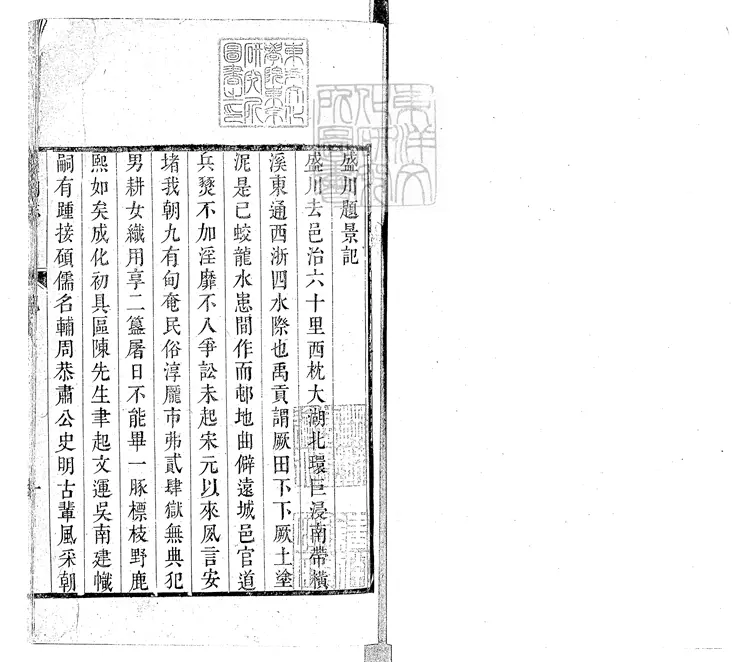 盛川題景記
盛川去邑治六十里西枕大湖北環巨浸南帶橫
溪東通西浙四水際也禹貢謂厥田下下厥土塗
泥是已蛟龍水患間作而邨地曲僻遠城邑官道
兵燹不加淫靡不入爭訟未起宋元以來風言安
堵我朝九有甸奄民俗淳龐市弗貳肆獄無典犯
男耕女織用享二簋屠日不能畢一豚標枝野鹿
熙如矣成化初具區陳先生聿起文運吳南建幟
嗣有踵接碩儒名輔周恭肅公史明古輩風采朝
東方文化
學院東京
研究所
圖書之印
東洋文
化研究
所圖書